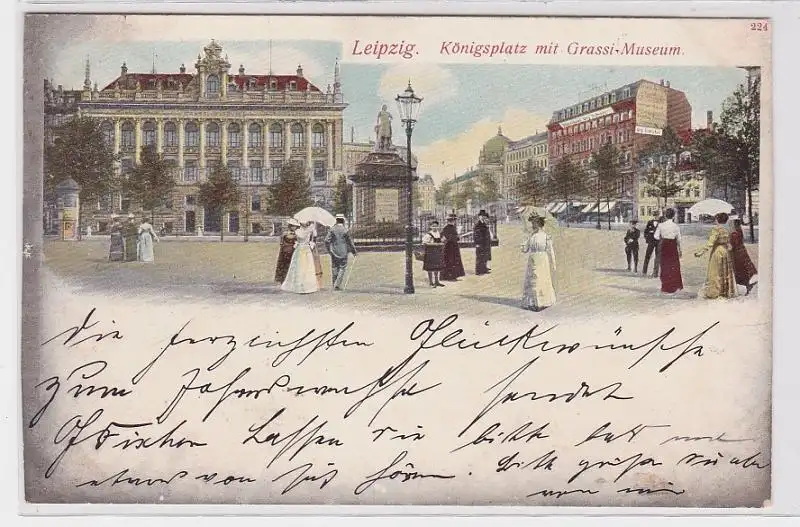 224
Leipzig. Königsplatz mit Grassi-Museum.
Die herzlichsten Glückwünsche
zum Jahreswechsel sendet
Lassen Sie bitte bald
etwas von sich hören. Bitte grüße
von mir